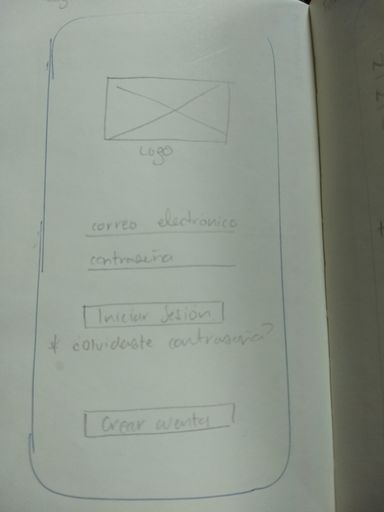 Logo
correo electronico
contraseña
Iniciar Sesión
* ¿olvidaste contraseña?
Crear cuenta